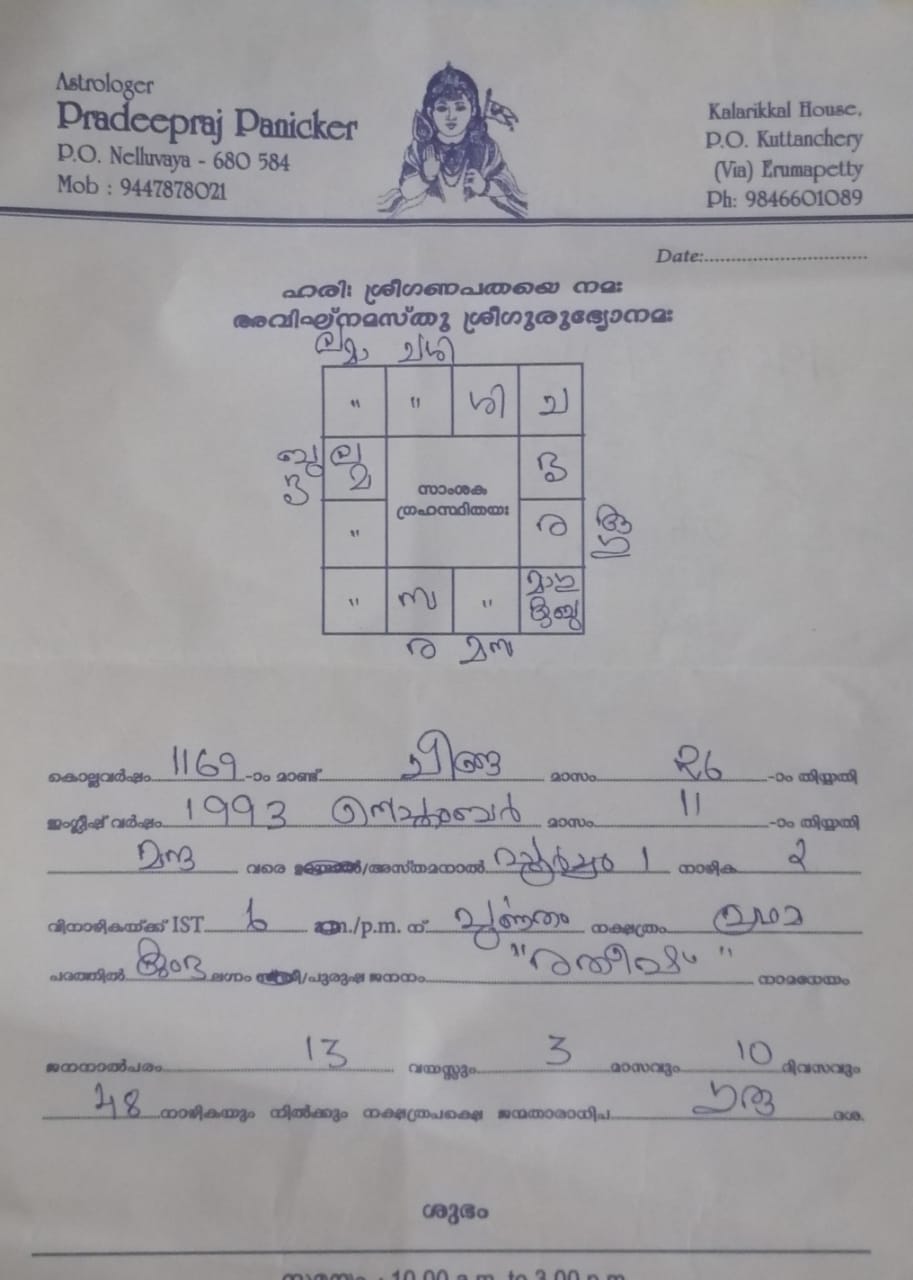 Astrologer
Pradeepraj Panicker
P.O. Nelluvaya - 680 584
Mob : 9447878021
Kalarikkal House,
P.O. Kuttanchery
(Via) Erumapetty
Ph: 9846601089
Date:
ഹരിഃ ശ്രീഗണപതയെ നമഃ
അവിഘ്നമസ്തു ശ്രീഗുരുഭ്യോനമഃ
" " ശി ച
സാംശക
ഗ്രഹസ്ഥിതയഃ
" ര
" "
ര
കൊല്ലവർഷം 1169 -ാം മാണ്ട് ചിങ്ങ മാസം 26 -ാം തിയ്യതി
ഇംഗ്ലീഷ് വർഷം 1993 സെപ്തംബർ മാസം 11 -ാം തിയ്യതി
മന്ദ വരെ /അസ്തമനാൽ 1 നാഴിക 2
വിനാഴികയ്ക്ക് IST 6 /p.m. ന് പുണർതം നക്ഷത്രം പ്രഥമ
പദത്തിൽ കുംഭ ലഗ്നം /പുരുഷ ജനനം നാമധേയം
ജനനാൽപരം 13 വയസ്സും 3 മാസവും 10 ദിവസവും
48 നാഴികയും നിൽക്കും നക്ഷത്രപക്ഷെ ജന്മതാരാധിപ ഗുരു ദശ.
ശുഭം
സമയം : 10.00 a.m. to 3.00 p.m.